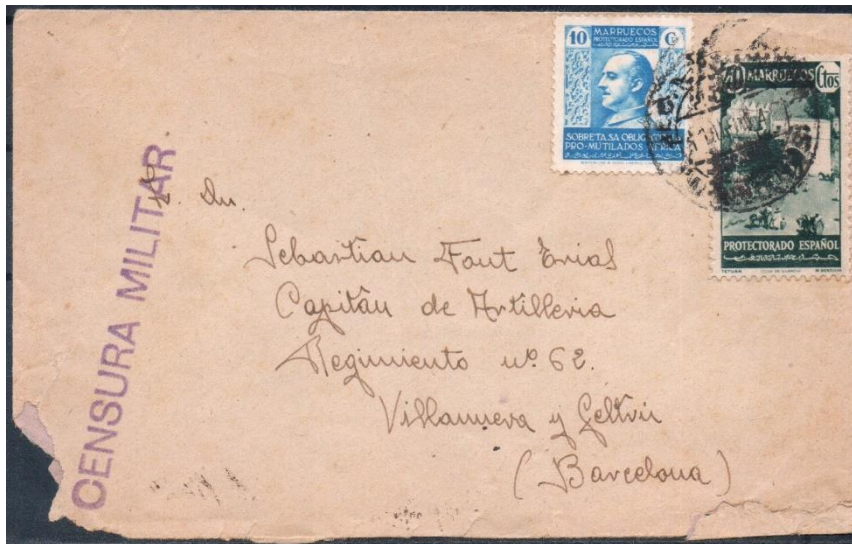 10 Cs
MARRUECOS
PROTECTORADO ESPAÑOL
SOBRETASA OBLIGATORIA
PRO-MUTILADOS AFRICA
MARRUECOS Ctos
PROTECTORADO ESPAÑOL
TETUAN
CENSURA MILITAR
Dn.
Sebastian Font Erias
Capitán de Artilleria
Regimiento nº 62.
Villanueva y Geltrú
(Barcelona)